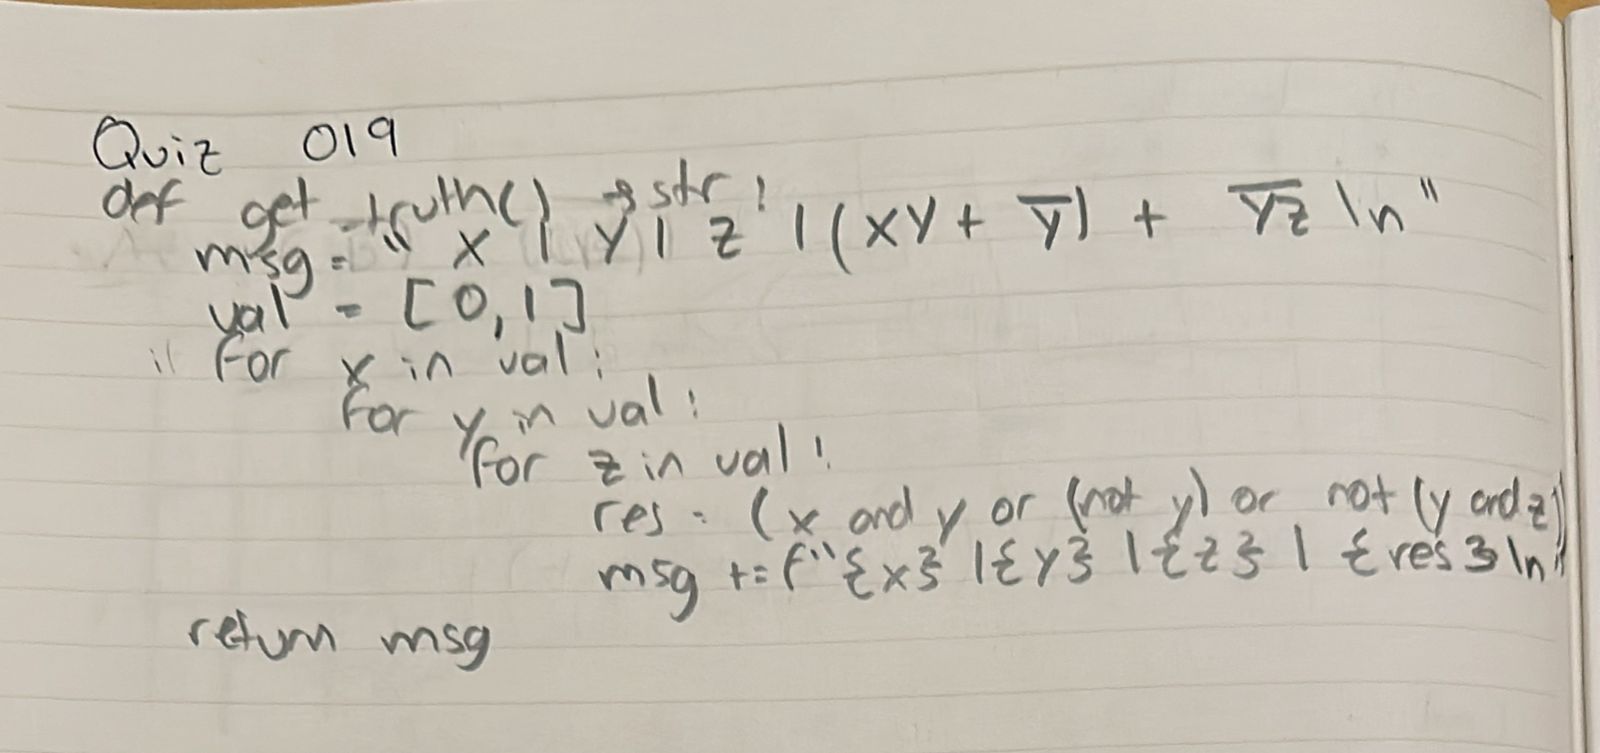 Quiz 019
def get_truth() → str:
msg = " X | Y | Z | (XY + Y̅) + Y̅Z̅ \n"
val = [0,1]
for x in val:
for y in val:
for z in val:
res = (x and y or (not y) or not (y and z)
msg += f"{x} |{y} |{z} | {res} \n"
return msg